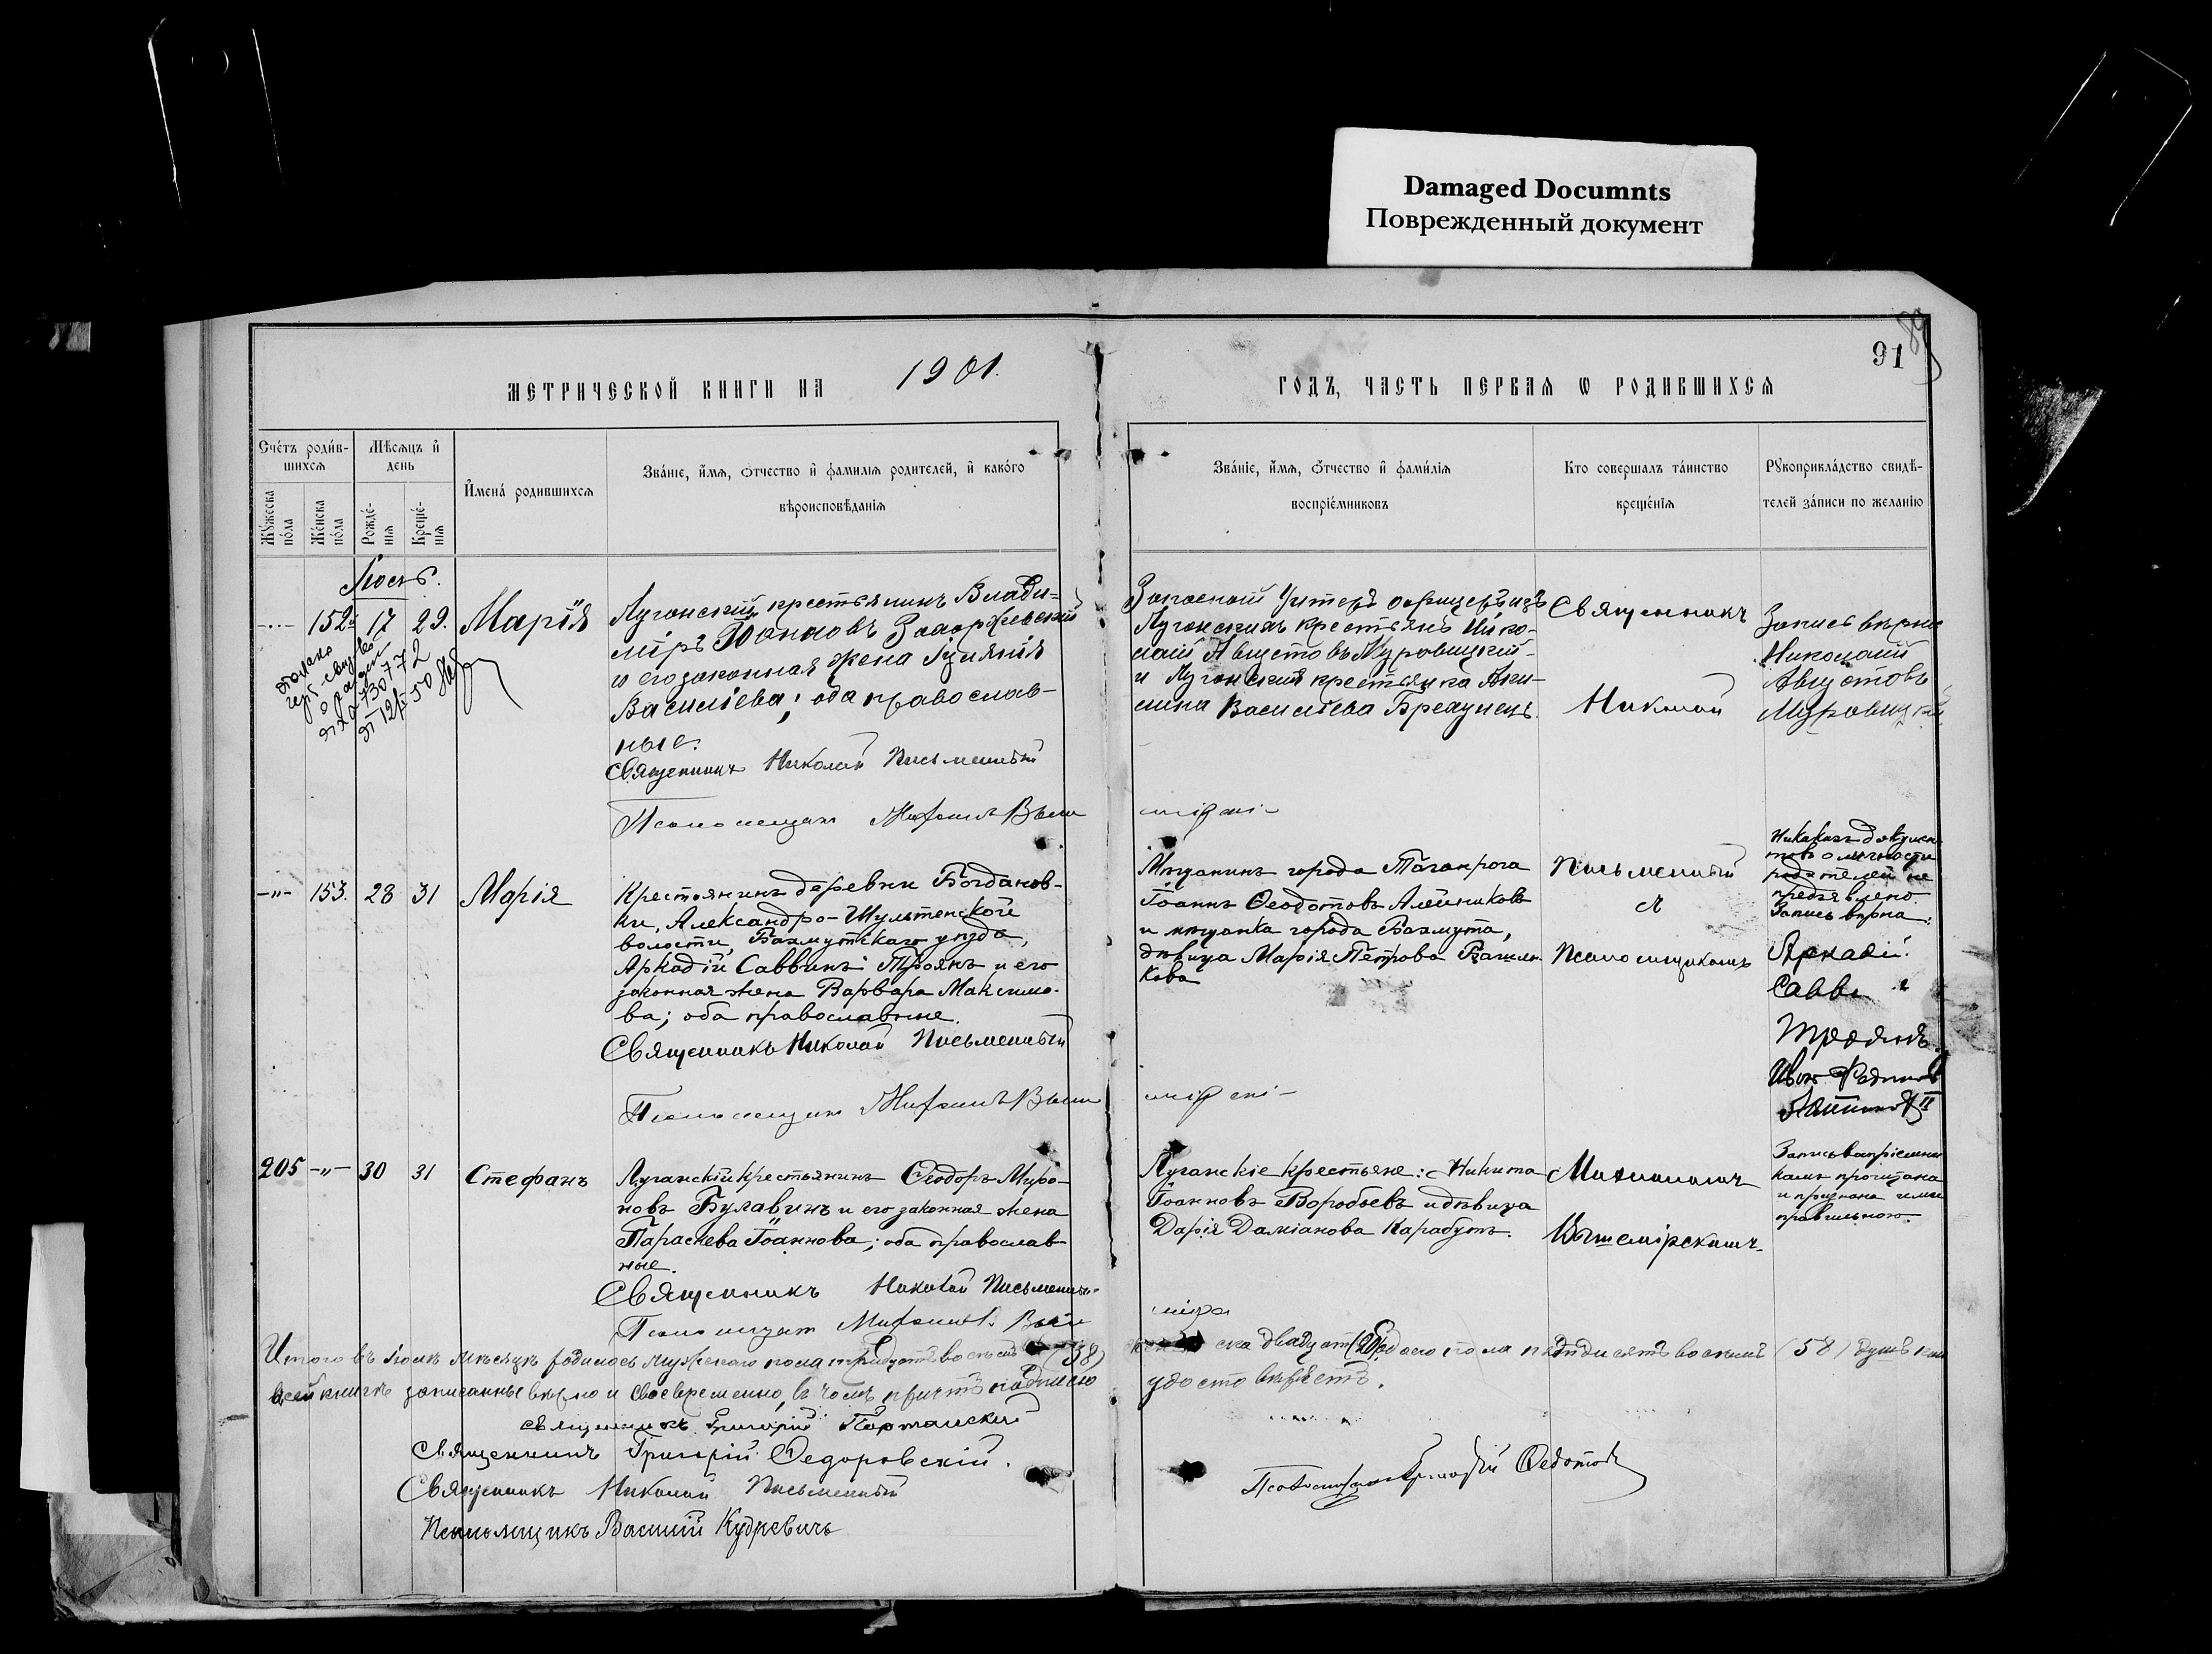 Damaged Documnts
Поврежденный документ
91
89
МЕТРИЧЕСКОЙ КНИГИ НА 1901.
ГОДЪ, ЧАСТЬ ПЕРВАЯ Ѡ РОДИВШИХСЯ
Счетъ родившихся
Мѣсяцъ и день
Мужеска пола
Женска пола
Рожденія
Крещенія
Имена родившихся
Званіе, имя, отчество и фамилія родителей, и какого
вѣроисповѣданія
Званіе, имя, отчество и фамилія
воспріемниковъ
Кто совершалъ таинство
крещенія
Рукоприкладство свидѣ-
телей записи по желанію
152. 17 29. Марія
Луганскій крестьянинъ Влади-
міръ Іоанновъ
и его законная жена
Васильева; оба православ-
ные.
Священникъ Николай Письменный
Псаломщикъ
Луганскихъ крестьянъ Нико-
лай Августовъ
и Луганская крестьянка Аки-
лина Васильева
Священникъ
Николай
Запись вѣрна
Николай
Августовъ
153. 28 31 Марія
Крестьянинъ деревни Богданов-
ки, Александро-Шультенской
волости, Бахмутскаго уѣзда,
Аркадій Саввинъ Троянъ и его
законная жена Варвара Максимо-
ва; оба православные.
Священникъ Николай Письменный
Псаломщикъ
Мѣщанинъ города Таганрога
Іоаннъ Ѳеодотовъ Алейниковъ
и мѣщанка города Бахмута,
дѣвица Марія Петрова
кова
Письменный
съ
Псаломщикомъ
Никакихъ докумен
товъ о личности
родителей не
предъявлено.
Запись вѣрна:
Аркадій
Савви
Троянъ.
205 30 31 Стефанъ
Луганскій крестьянинъ Ѳеодоръ Миро-
новъ Булавинъ и его законная жена
Параскева Іоаннова; оба православ-
ные.
Священникъ Николай Письменный
Псаломщикъ
Луганскіе крестьяне: Никита
Іоанновъ Воробьевъ и дѣвица
Дарія Даміанова Карабутъ.
Вышемірскимъ.
Запись воспріемни
камъ прочитана
и признана ими
правильною.
Итого въ Іюлѣ мѣсяцѣ родилось мужескаго пола тридцать восемь (38)
ска двадцать (20) обоего пола пятьдесятъ восемь (58) душъ
всей книгѣ записанные вѣрно и своевременно, въ чемъ причтъ подписью
удостовѣряетъ.
священникъ Григорій
Священникъ Григорій Ѳедоровскій.
Священникъ Николай Письменный
Псаломщикъ Василій Кудревичъ
Ѳедотовъ